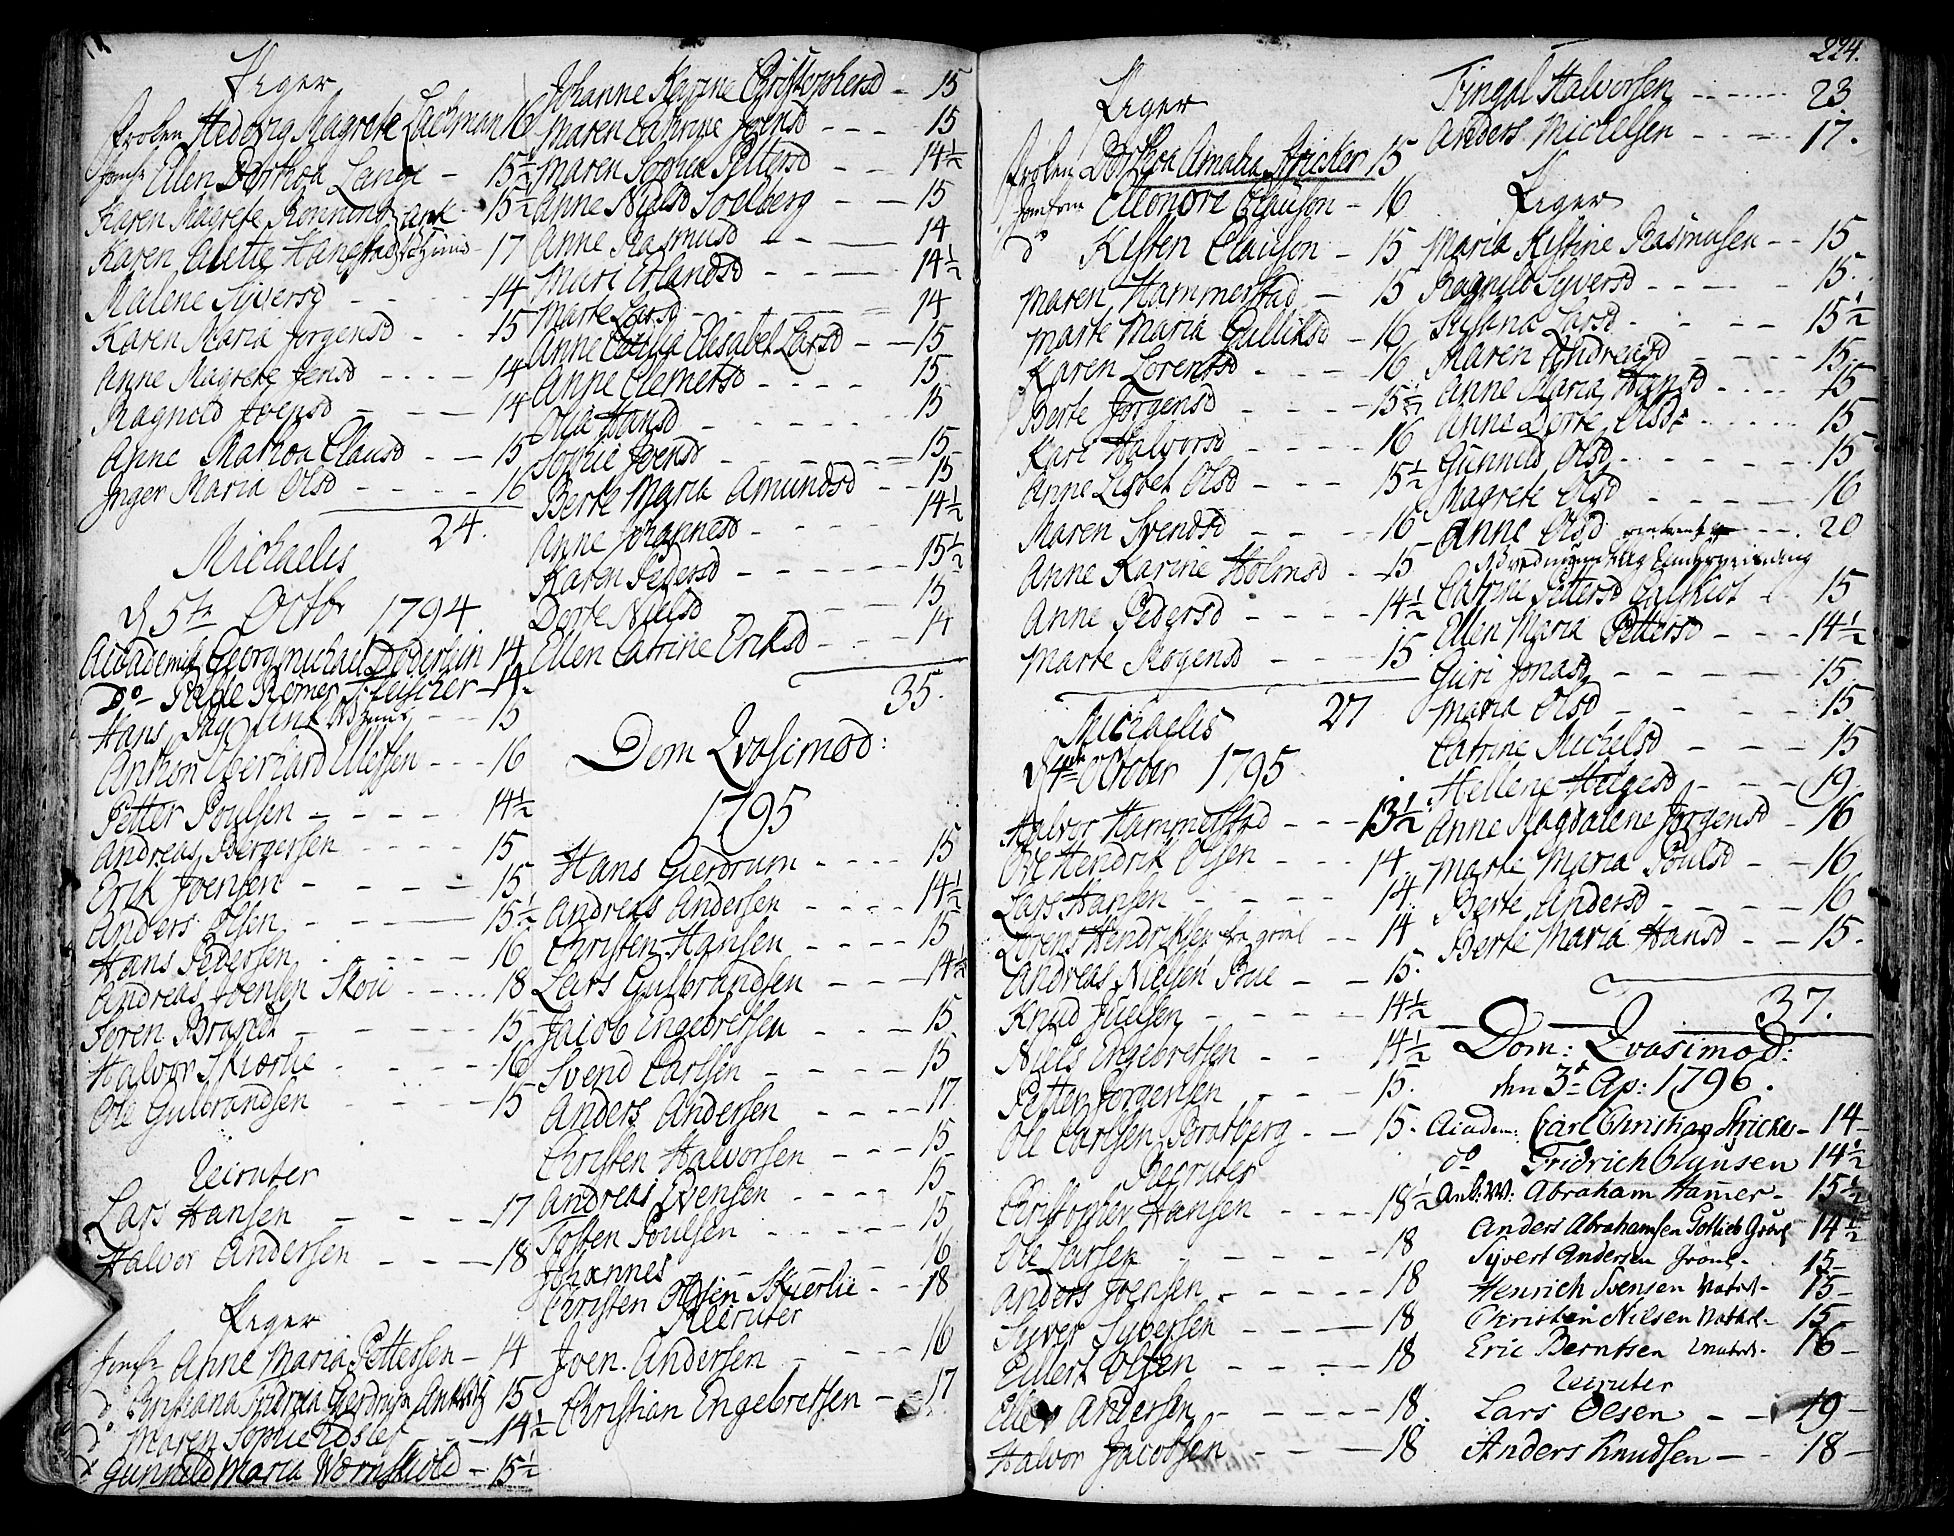 Piger
Frøken Hedvig Magrete Lachman 16
Jomfr Ellen Dorthea Lange - 15½
Karen Magrete - 15½
Karen Alette - 17
Malene Syversd - 14
Karen Maria Jørgensd - 15
Anne Magrete Jensd - 14
Ragnild Joensd - 14
Anne Mathea Clausd - 15
Inger Maria Olsd - 16
24.
Michaelis
d 5te Octbr 1794
Academ: Georg Michael Døderlein 14
do Palle Rømer Fleischer 14
Hans - 15
Anthon Eberhard - 16
Petter Poulsen - 14½
Andreas Børgersen - 15
Erik Joensen - 15
Anders Olsen - 15½
Hans Pedersen - 16
Andreas Joensen Skou - 18
Søren Brandt - 15
Halvor Skiørlie - 16
Ole Gulbrandsen - 15
Recruter
Lars Hansen - 17
Halvor Andersen - 18
Piger
Jomfr Anne Maria Pettersen - 14
do Christiana - 15
do Maren Sophie - 14½
do Gunnild Maria Wørnskiold - 15½
Johanne Karine Christophersd - 15
Maren Cathrine Joensd - 15
Maren Sophia Pettersd - 14½
Anne Nielsd Soelberg - 15
Anne Rasmusd - 14
Mari Erlandsd - 14½
Marte Larsd - 14
Anne Cecilia Elisabet Larsd - 15
Anne Clemetsd - 15
Olia Hansd - 15
Sophie Joensd - 15
Berte Maria Amundsd - 15
Anne Johannesd - 14½
Karen Pedersd - 15½
Dorte Nielsd - 15
Ellen Catrine Eriksd - 14
35.
Dom Qvasimod:
1795
Hans Gierdrum - 15
Andreas Andersen - 14½
Christen Hansen - 15
Lars Gulbrandsen - 14½
Jacob Engebretsen - 15
Svend Carlsen - 15
Anders Andersen - 17
Christen Halvorsen - 15
Andreas Evensen - 15
Tosten Poulsen - 15
Johannes - 16
Christen Olsen Skierlie - 18
Recruter
Joen Andersen - 16
Christian Engebretsen - 17
Piger
Frøken Dorthea Amalia Stricker 15
Jomfrue Eleonore Clauson - 16
do Kisten Clauson - 15
Maren Hammerstad - 15
Marte Maria Gulliksd - 16
Karen Lorentsd - 16
Berte Jørgensd - 15½
Kari Halvorsd - 16
Anne Lisbet Olsd - 15½
Maren Svendsd - 16
Anne Karine Holmsd - 15
Anne Pedersd - 14½
Marte Mogensd - 15
27
Michaelis
d 4de October 1795
Halvor Hammerstad - 13½
Ole Hendrik Olsen - 14
Lars Hansen - 14
Lorens Hendriksen - 14
Andreas Nielsen - 15
Knud Juelsen - 14½
Niels Engebretsen - 14½
Petter Jørgensen - 15
Ole Carlsen Bratberg - 15
Recruter
Christopher Hansen - 18½
Ole Larsen - 18
Anders Joensen - 18
Syver Syversen - 18
Ellert Olsen - 18
Elle Andersen - 18
Halvor Jacobsen - 18
224.
Fingal Halvorsen - 23
Anders Michelsen - 17.
Piger
Maria Kistine Rasmusen - 15
Ragnild Syversd - 15
Susana Larsd - 15½
Maren Andreasd - 15
Anne Maria Hansd - 15
Anne Dorte Olsd - 15
Gunnild Olsd - 15
Magrete Olsd - 16
Anne Olsd - 20
Catrine Pettersd - 15
Ellen Maria Pettersd - 14½
Guri Jonasd - 15
Maria Olsd - 15
Catrine Michelsd - 15
Hellene Helgesd - 19
Anne Magdalene Jørgensd - 16
Marte Maria Poulsd - 16
Berte Andersd - 16
Berte Maria Hansd - 15
37.
Dom: Qvasimod:
den 3de Ap: 1796.
Academ: Carl Christian Stricker - 14
do Fridrich Clausen 14½
Abraham Hamer - 15½
Anders Abrahamsen 14½
Syvert Andersen - 15
Henrich Svensen - 15
Christen Nilsen - 15
Eric Berntsen - 16
Recruter
Lars Olsen - 19
Anders Knudsen - 18